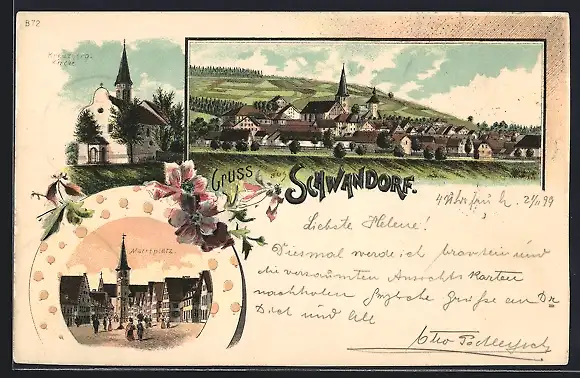 B 72
Kreuzberg-
kirche
Gruss aus
SCHWANDORF.
Marktplatz.
4 Uhr früh 2/11 99
Liebste Helene!
Diesmal werde ich brav sein und
die versäumten Ansichts Karten
nachholen Grüße an
Dich und All
Otto